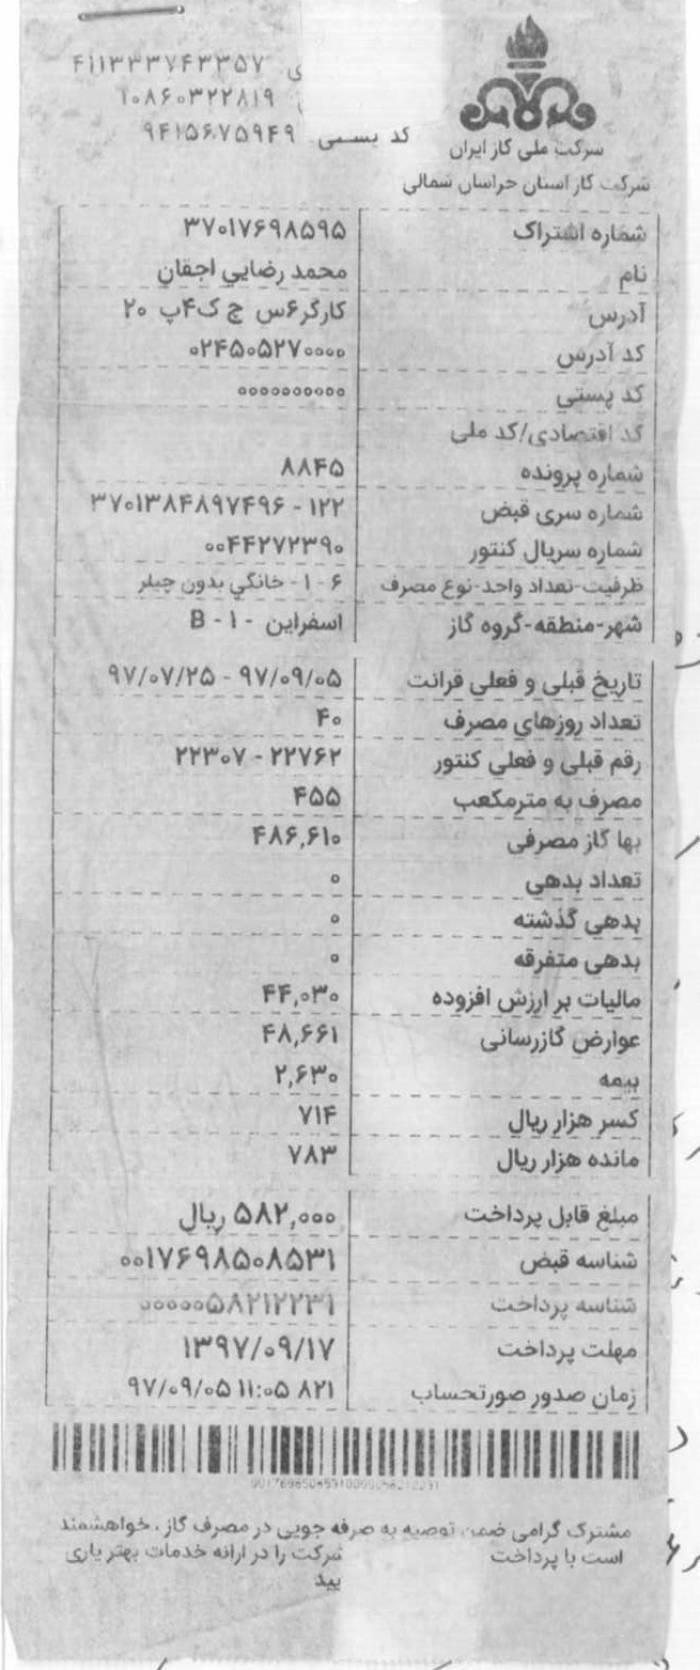 ۴۱۱۳۳۳۷۴۳۳۵۷
۱۰۸۶۰۳۲۲۸۱۹
کد پستی ۹۴۱۵۶۷۵۹۴۹
شرکت ملی گاز ایران
شرکت گاز استان خراسان شمالی
شماره اشتراک ۳۷۰۱۷۶۹۸۵۹۵
نام محمد رضایي اجقان
آدرس کارگر۶س چ ک۴پ ۲۰
کد آدرس ۰۲۴۵۰۵۲۷۰۰۰۰
کد پستی ۰۰۰۰۰۰۰۰۰۰
کد اقتصادی/کد ملی
شماره پرونده ۸۸۴۵
شماره سری قبض ۱۲۲ - ۳۷۰۱۳۸۴۸۹۷۴۹۶
شماره سریال کنتور ۰۰۴۴۲۷۲۳۹۰
ظرفیت-تعداد واحد-نوع مصرف ۶ - ۱ - خانگي بدون چیلر
شهر-منطقه-گروه گاز اسفراین - ۱ - B
تاریخ قبلی و فعلی قرائت ۹۷/۰۹/۰۵ - ۹۷/۰۷/۲۵
تعداد روزهای مصرف ۴۰
رقم قبلی و فعلی کنتور ۲۲۷۶۲ - ۲۲۳۰۷
مصرف به مترمکعب ۴۵۵
بها گاز مصرفی ۴۸۶,۶۱۰
تعداد بدهی ۰
بدهی گذشته ۰
بدهی متفرقه ۰
مالیات بر ارزش افزوده ۴۴,۰۳۰
عوارض گازرسانی ۴۸,۶۶۱
بیمه ۲,۶۳۰
کسر هزار ریال ۷۱۴
مانده هزار ریال ۷۸۳
مبلغ قابل پرداخت ۵۸۲,۰۰۰ ریال
شناسه قبض ۰۰۱۷۶۹۸۵۰۸۵۳۱
شناسه پرداخت ۰۰۰۰۰۵۸۲۱۲۲۳۱
مهلت پرداخت ۱۳۹۷/۰۹/۱۷
زمان صدور صورتحساب ۹۷/۰۹/۰۵ ۱۱:۰۵ ۸۲۱
مشترک گرامی ضمن توصیه به صرفه جویی در مصرف گاز ، خواهشمند
است با پرداخت شرکت را در ارائه خدمات بهتر یاری